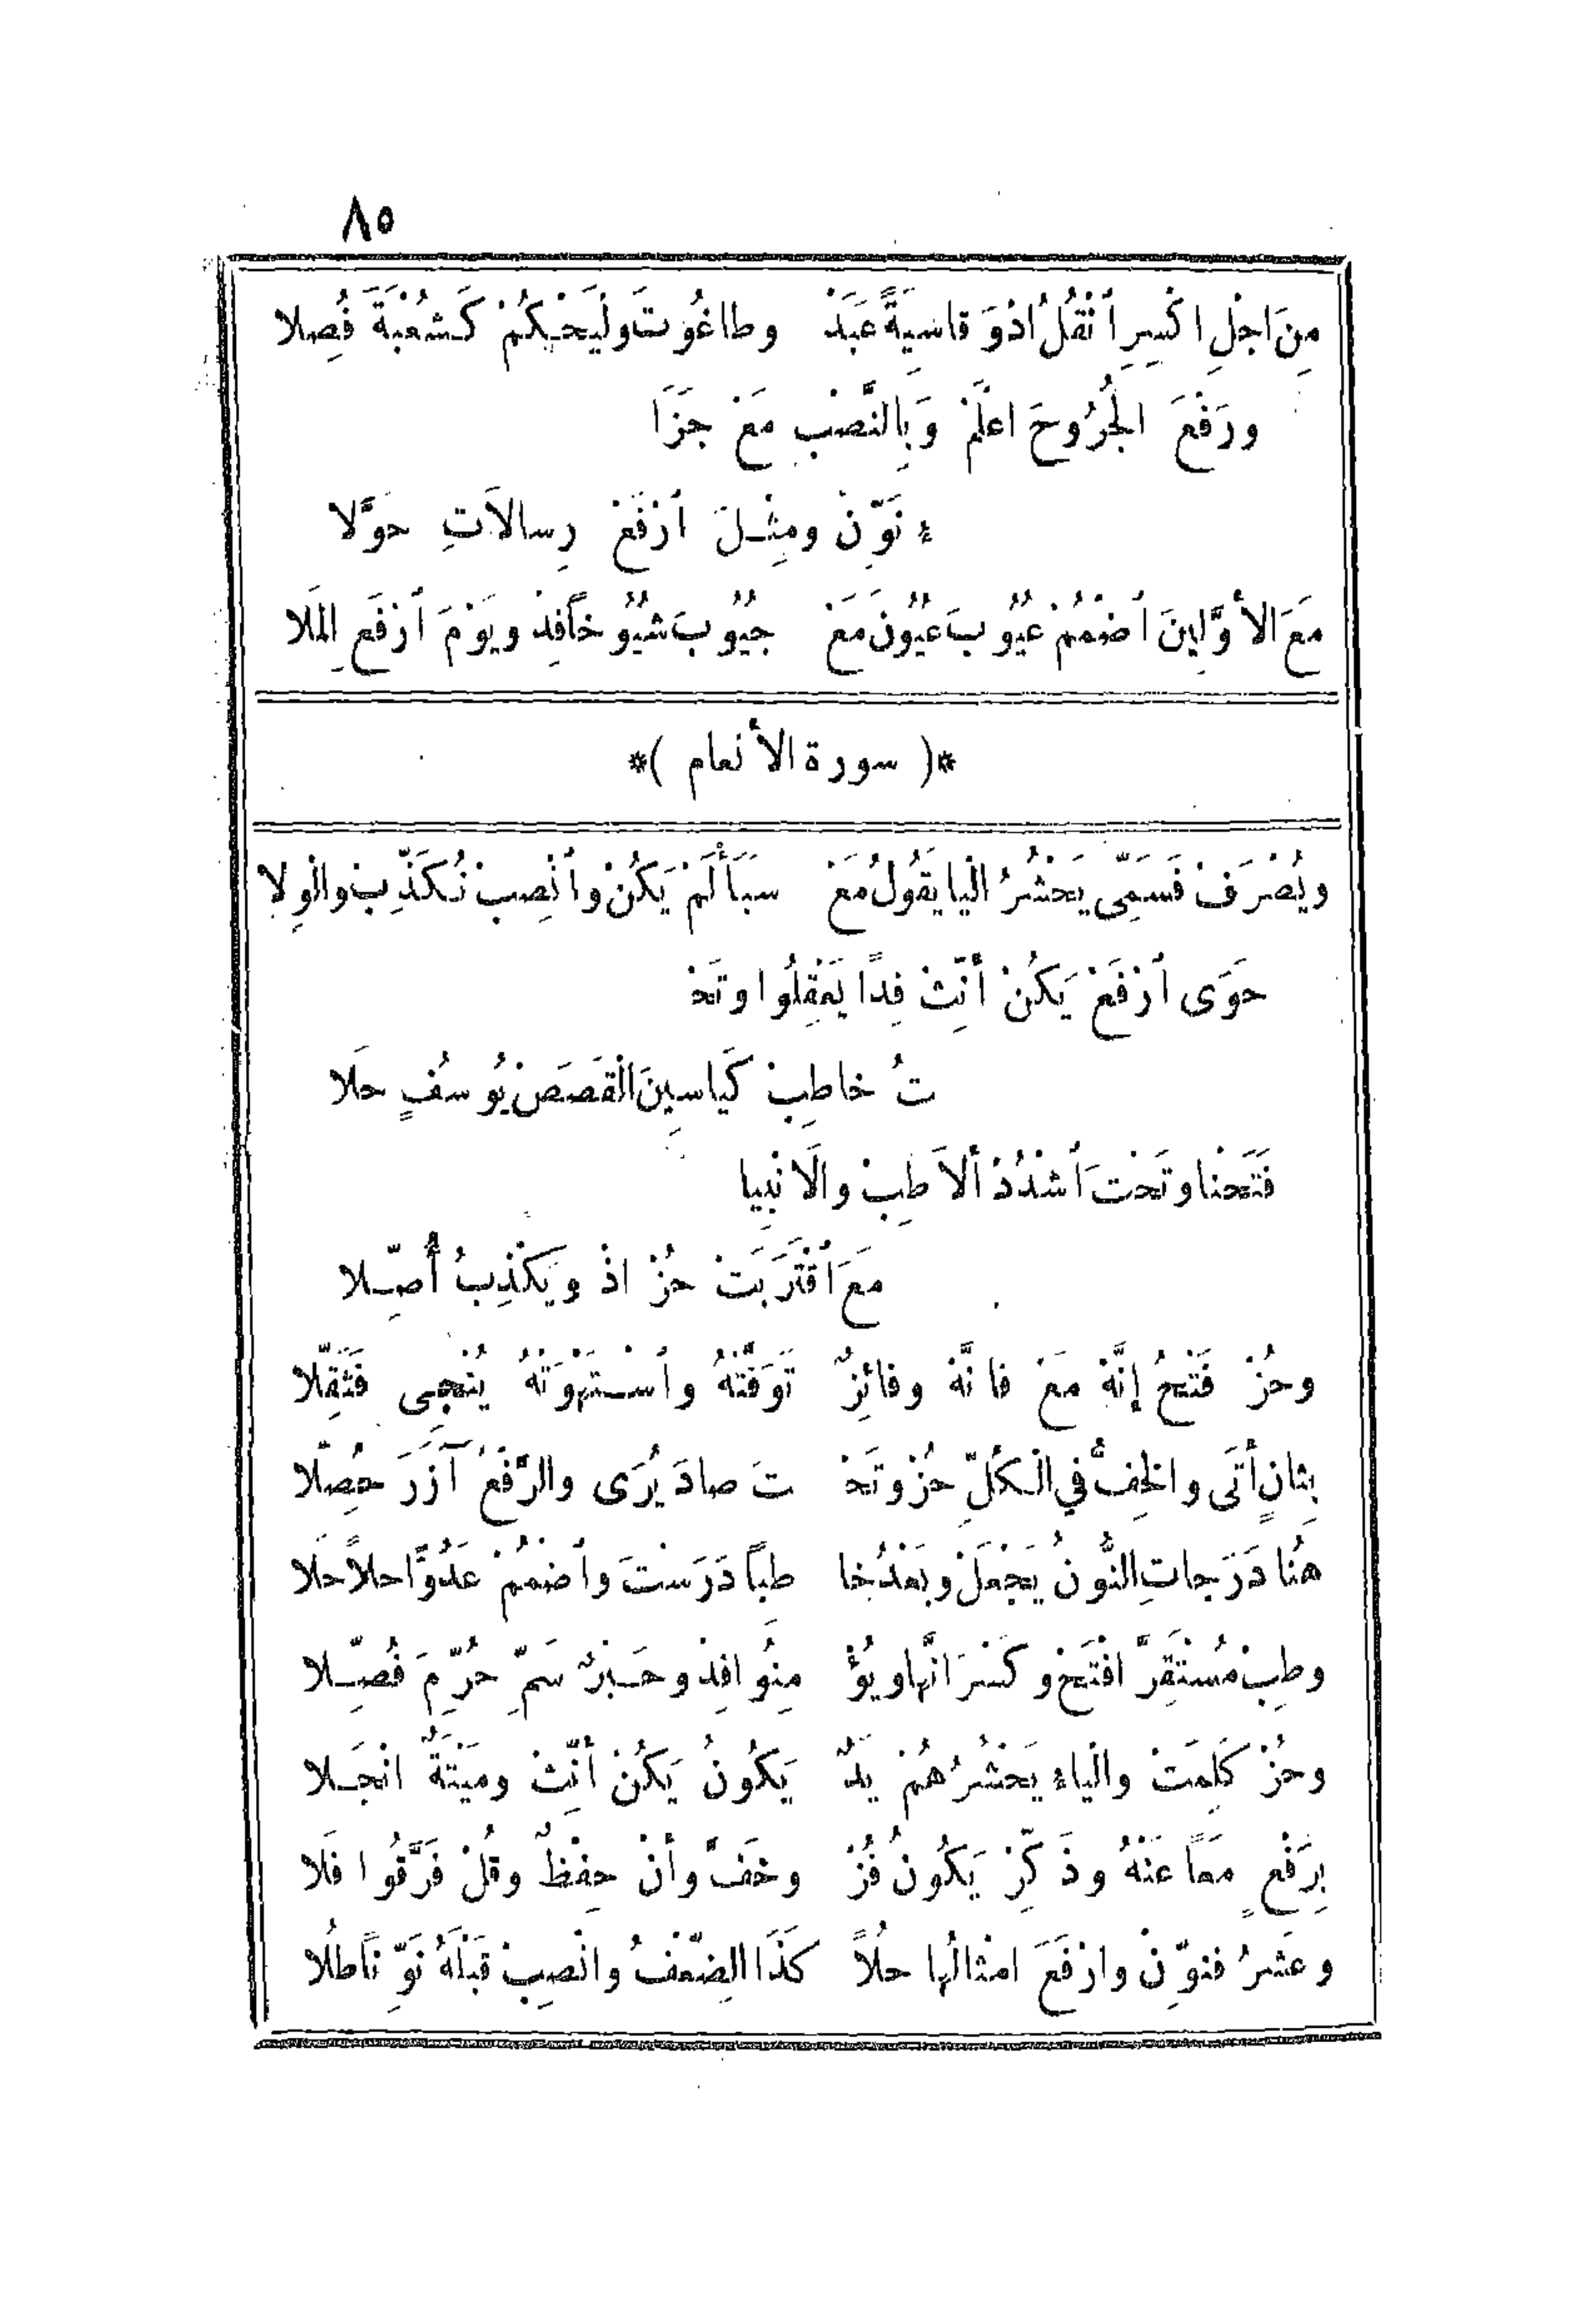 ٨٥
مِنَ اجْلِ اكْسِرِ أنْقُلْ أُدْوَ قاسِيَةً عَبَدْ وطاغُوتَ ولْيَحْكُمْ كَشُعْبَةَ فُصِلا
ورَفْعَ الْجُرُوحَ اعْلَمْ وَبِالنَّصْبِ مَعْ جَزَا
ءٌ نَوِّنْ ومِثْلَ اَرْفَعْ رِسالاَتِ حَوَّلا
مَعَ الأوَّلِينَ اَضْمُمْ عُيُوبَ عُيُونَ مَعْ جُيُوبَ شُيُوخاً فِدْ ويَوْمَ اَرْفَعِ الْمَلا
*( سورة الأنعام )*
ويُصْرَفْ فَسَمِّى يَحْشُرُ الْيا يَقُولُ مَعْ سَبَأْ لَمْ يَكُنْ واَنْصِبْ نُكَذِّبُ والْوِلا
حَوَى اَرْفَعْ يَكُنْ أنِّثْ فِدًا يَعْقِلُوا وتَحْ
تُ خاطِبْ كَياسِينَ الْقَصَصْ يُوسُفٍ حَلا
فَتَحْنا وتَحْتَ اَشْدُدْ ألاَ طِبْ والَانْبِيا
مَعَ اَقْتَرَبَتْ حُزْ اذْ ويَكْذِبُ أُصِّلا
وحُزْ فَتْحُ إنَّهْ مَعْ فانَّهْ وفائِزٌ تَوَفَّتْهُ واَسْتَهْوَتْهُ يُنْجِى فَثَقِّلا
بِثانٍ أتَى والْخِفُّ في الْكُلِّ حُزْ وتَحْ تَ صادَ يُرَى والرَّفْعُ آزَرَ حُصِّلا
هُنا دَرَجاتِ النُّونُ يَجْعَلْ وبَعْدُ خا طِباً دَرَسَتْ واَضْمُمْ عُدُوًّا حلاً حَلا
وطِبْ مُسْتَقِرَّ افْتَحْ وكَسْرَ انَّها ويُؤْ مِنُوا فِدْ وحَبْرٌ سَمِّ حُرِّمَ فُصِّلا
وحُزْ كَلِمَتْ والْياءِ يَحْشُرُهُمْ يَدٌ يَكُونُ يَكُنْ أنِّثْ ومَيْتَةٌ انْجَلا
بِرَفْعٍ مَعاً عَنْهُ وذَكِّرْ يَكُونُ فُزْ وخَفَّ وأنْ حِفْظٌ وقُلْ فَرَّقُوا فَلا
وعَشْرُ فنوِّنْ وارْفَعَ امْثالُها حلُاً كَذَا الضِّعْفُ وانْصِبْ قَبْلَهُ نَوِّناً طُلا